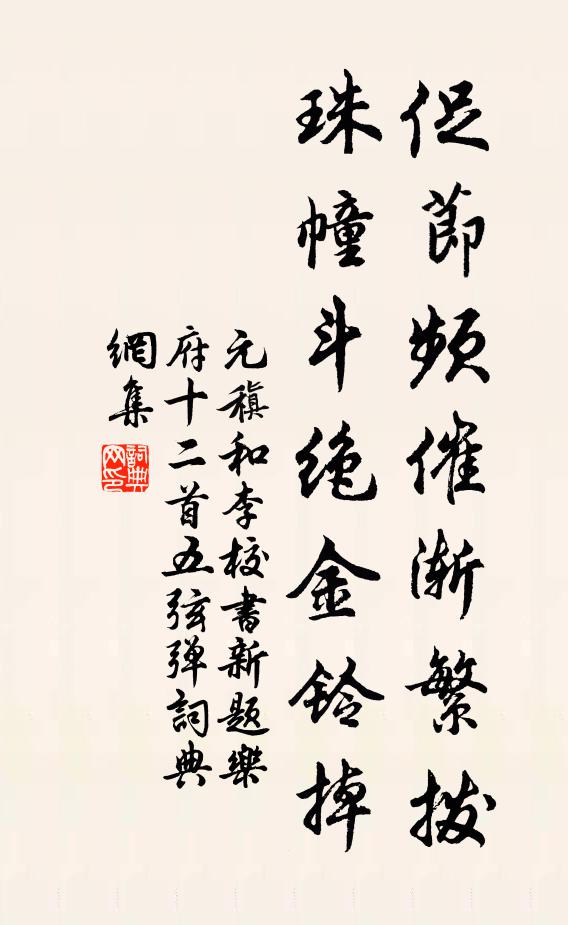 促節頻催漸繁撥
珠幢斗絕金鈴掉
元稹和李校書新題樂
府十二首五弦彈詞典
網集
詞典網印